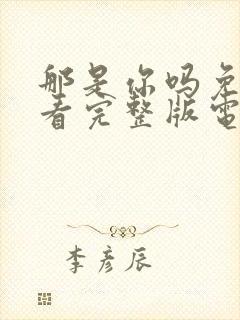 那是你吗免
看完整版電
李彦辰